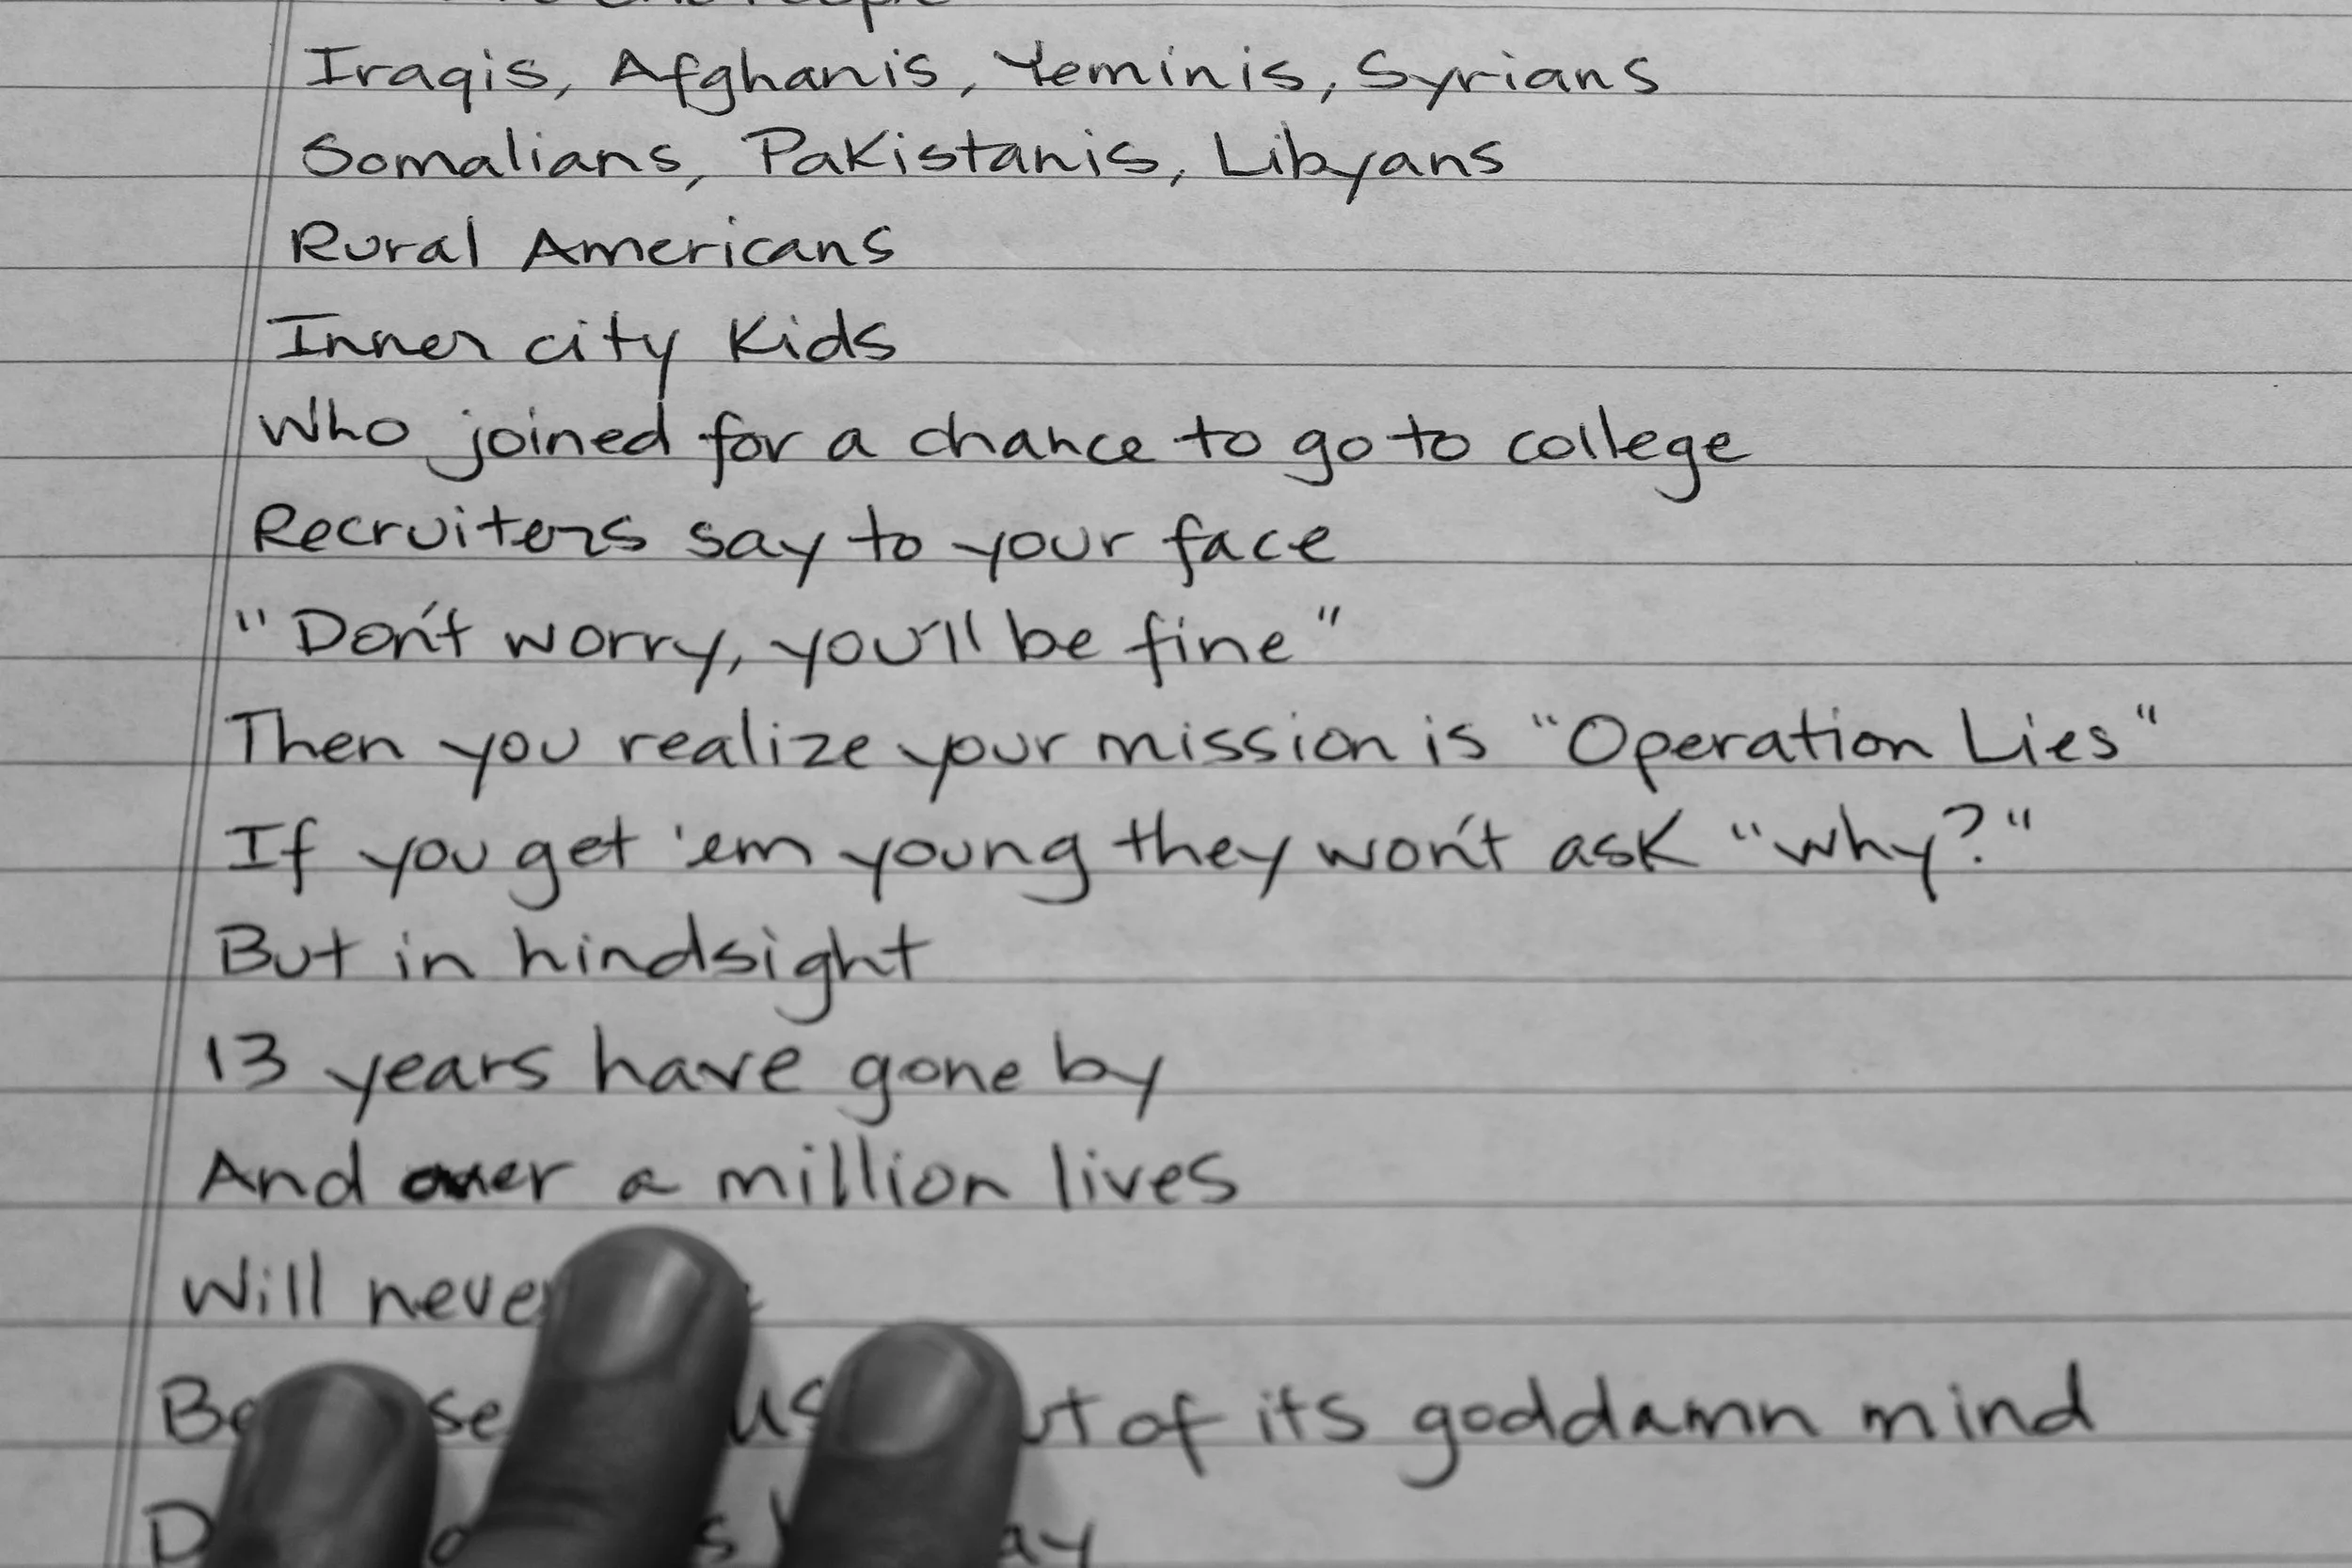 Iraqis, Afghanis, Yeminis, Syrians
Somalians, Pakistanis, Libyans
Rural Americans
Inner city Kids
Who joined for a chance to go to college
Recruiters say to your face
"Don't worry, you'll be fine"
Then you realize your mission is "Operation Lies"
If you get 'em young they won't ask "why?"
But in hindsight
13 years have gone by
And over a million lives
Will never
of its goddamn mind